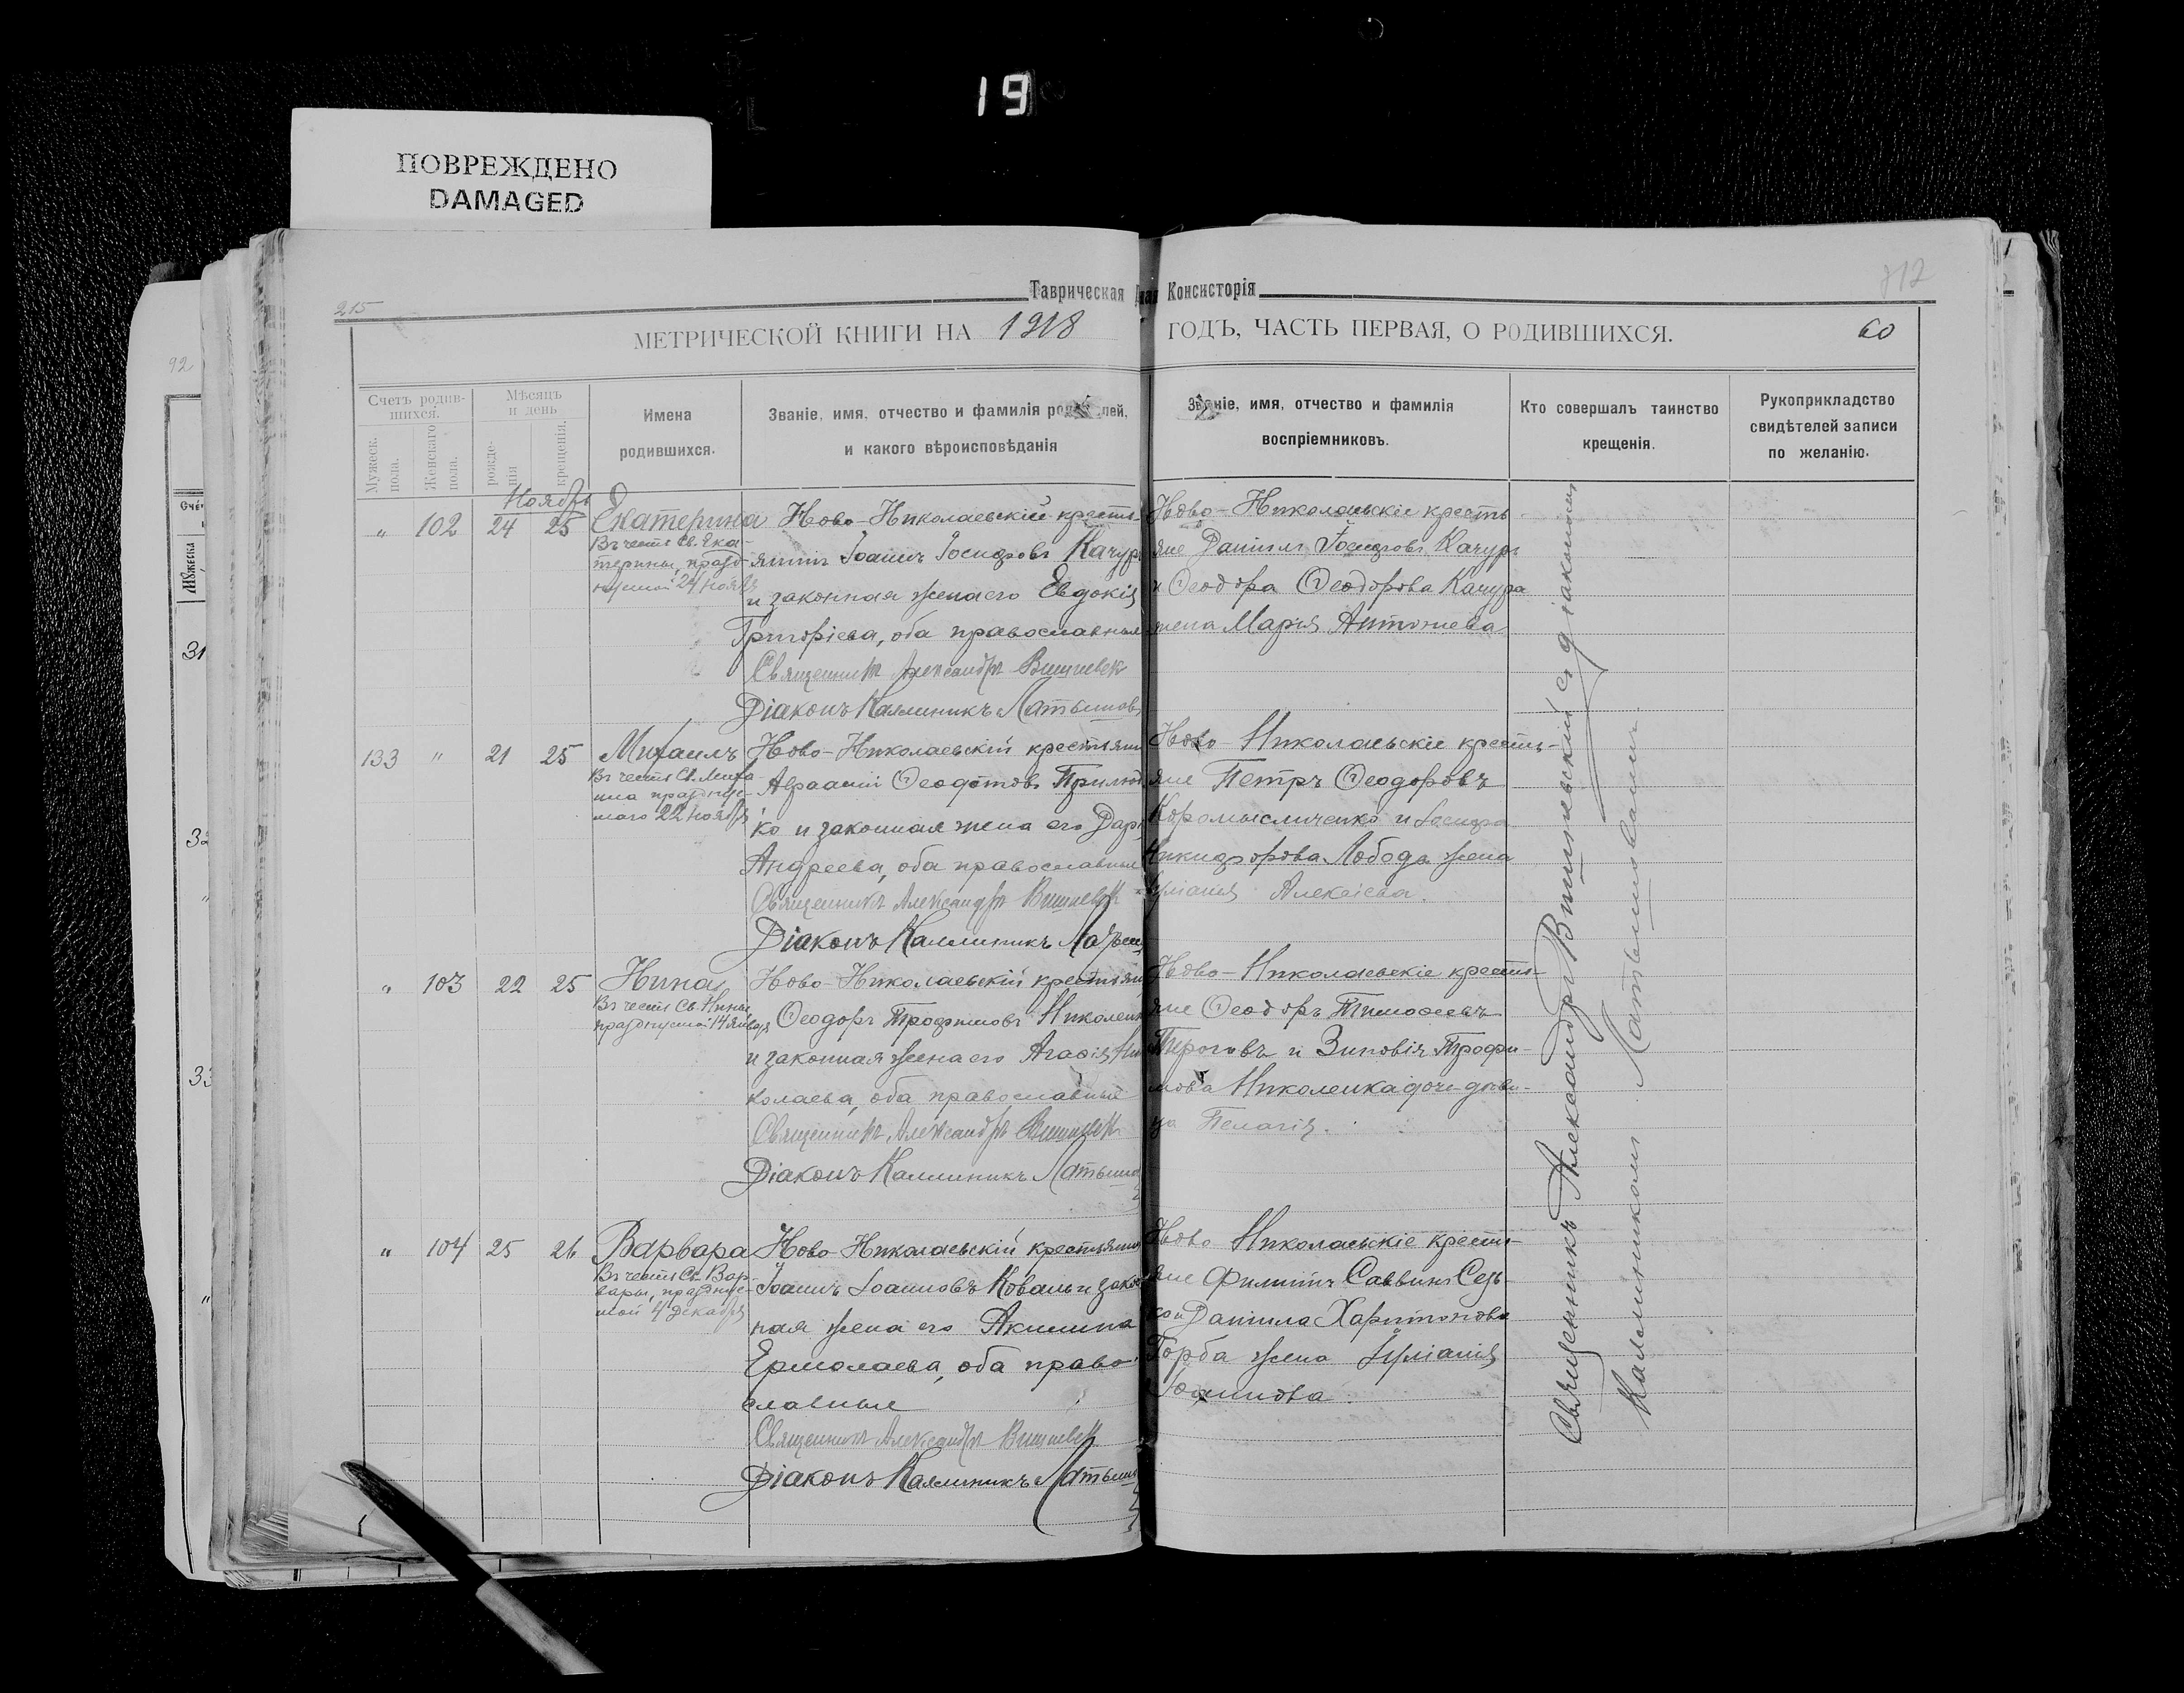 19
ПОВРЕЖДЕНО
DAMAGED
215
Таврическая
Консисторія
МЕТРИЧЕСКОЙ КНИГИ НА 1918
ГОДЪ, ЧАСТЬ ПЕРВАЯ, О РОДИВШИХСЯ.
60
92
31
32
33
Счетъ родив-
шихся.
Мужеск.
пола.
Женскаго
пола.
Мѣсяцъ
и день
рожде-
нія
крещенія.
Имена
родившихся.
Званіе, имя, отчество и фамилія
и какого вѣроисповѣданія
Званіе, имя, отчество и фамилія
воспріемниковъ.
Кто совершалъ таинство
крещенія.
Рукоприкладство
свидѣтелей записи
по желанію.
Ноябрь
" 102 24 25 Екатерина
Въ честь Св. Ека-
терины, празд-
нуемой 24 ноября
Ново-Николаевскій кресть-
янинъ Іоаннъ Іосифовъ Качур
и законная жена его Евдокія
Григоріева, оба православные
Священникъ Александръ Вишневск
Діаконъ Каллиникъ Матвіинов
Ново-Николаевскіе кресть
яне Даніилъ Іосифовъ Качуръ
и Ѳеодора Ѳеодорова Качура
жена Марія Антониева
133 " 21 25 Михаилъ
Въ честь Св. Миха-
ила праздную-
маго 22 ноября
Ново-Николаевскій крестьянин
Авраамій Ѳеодотовъ
ко и законная жена его Дар
Андреева, оба православные
Священникъ Александръ Вишневск
Діаконъ Каллиникъ
Ново-Николаевскіе кресть-
яне Петръ Ѳеодоровъ
Коромысличенко и Іосифа
Никифорова Лобода жена
Іуліанія Алексіева.
" 103 22 25 Нина
Въ честь Св. Нины
празднуемой 14 января
Ново-Николаевскій крестьян
Ѳеодоръ Трофимовъ Николен
и законная жена его Агафія Ни
колаева, оба православные
Священникъ Александръ Вишневск
Діаконъ Каллиникъ
Ново-Николаевскіе кресть-
яне Ѳеодоръ Тимоѳеевъ
Пироговъ и Зиновія Трофи-
мова Николенка дочь-дѣви-
ца Пелагія.
" 104 25 26 Варвара
Въ честь Св. Вар-
вары, праздную-
мой 4 декабря
Ново-Николаевскій крестьянин
Іоаннъ Іоанновъ Коваль и закон
ная жена его Акилина
Ермолаева, оба право-
славные
Священникъ Александръ Вишневск
Діаконъ Каллиникъ
Ново Николаевскіе кресть-
яне Филиппъ Саввинъ
Даніила Харитонова
Горба жена Іуліанія
Іоаннова.
Священникъ Александръ Вишневскій съ діакономъ
Каллиникомъ